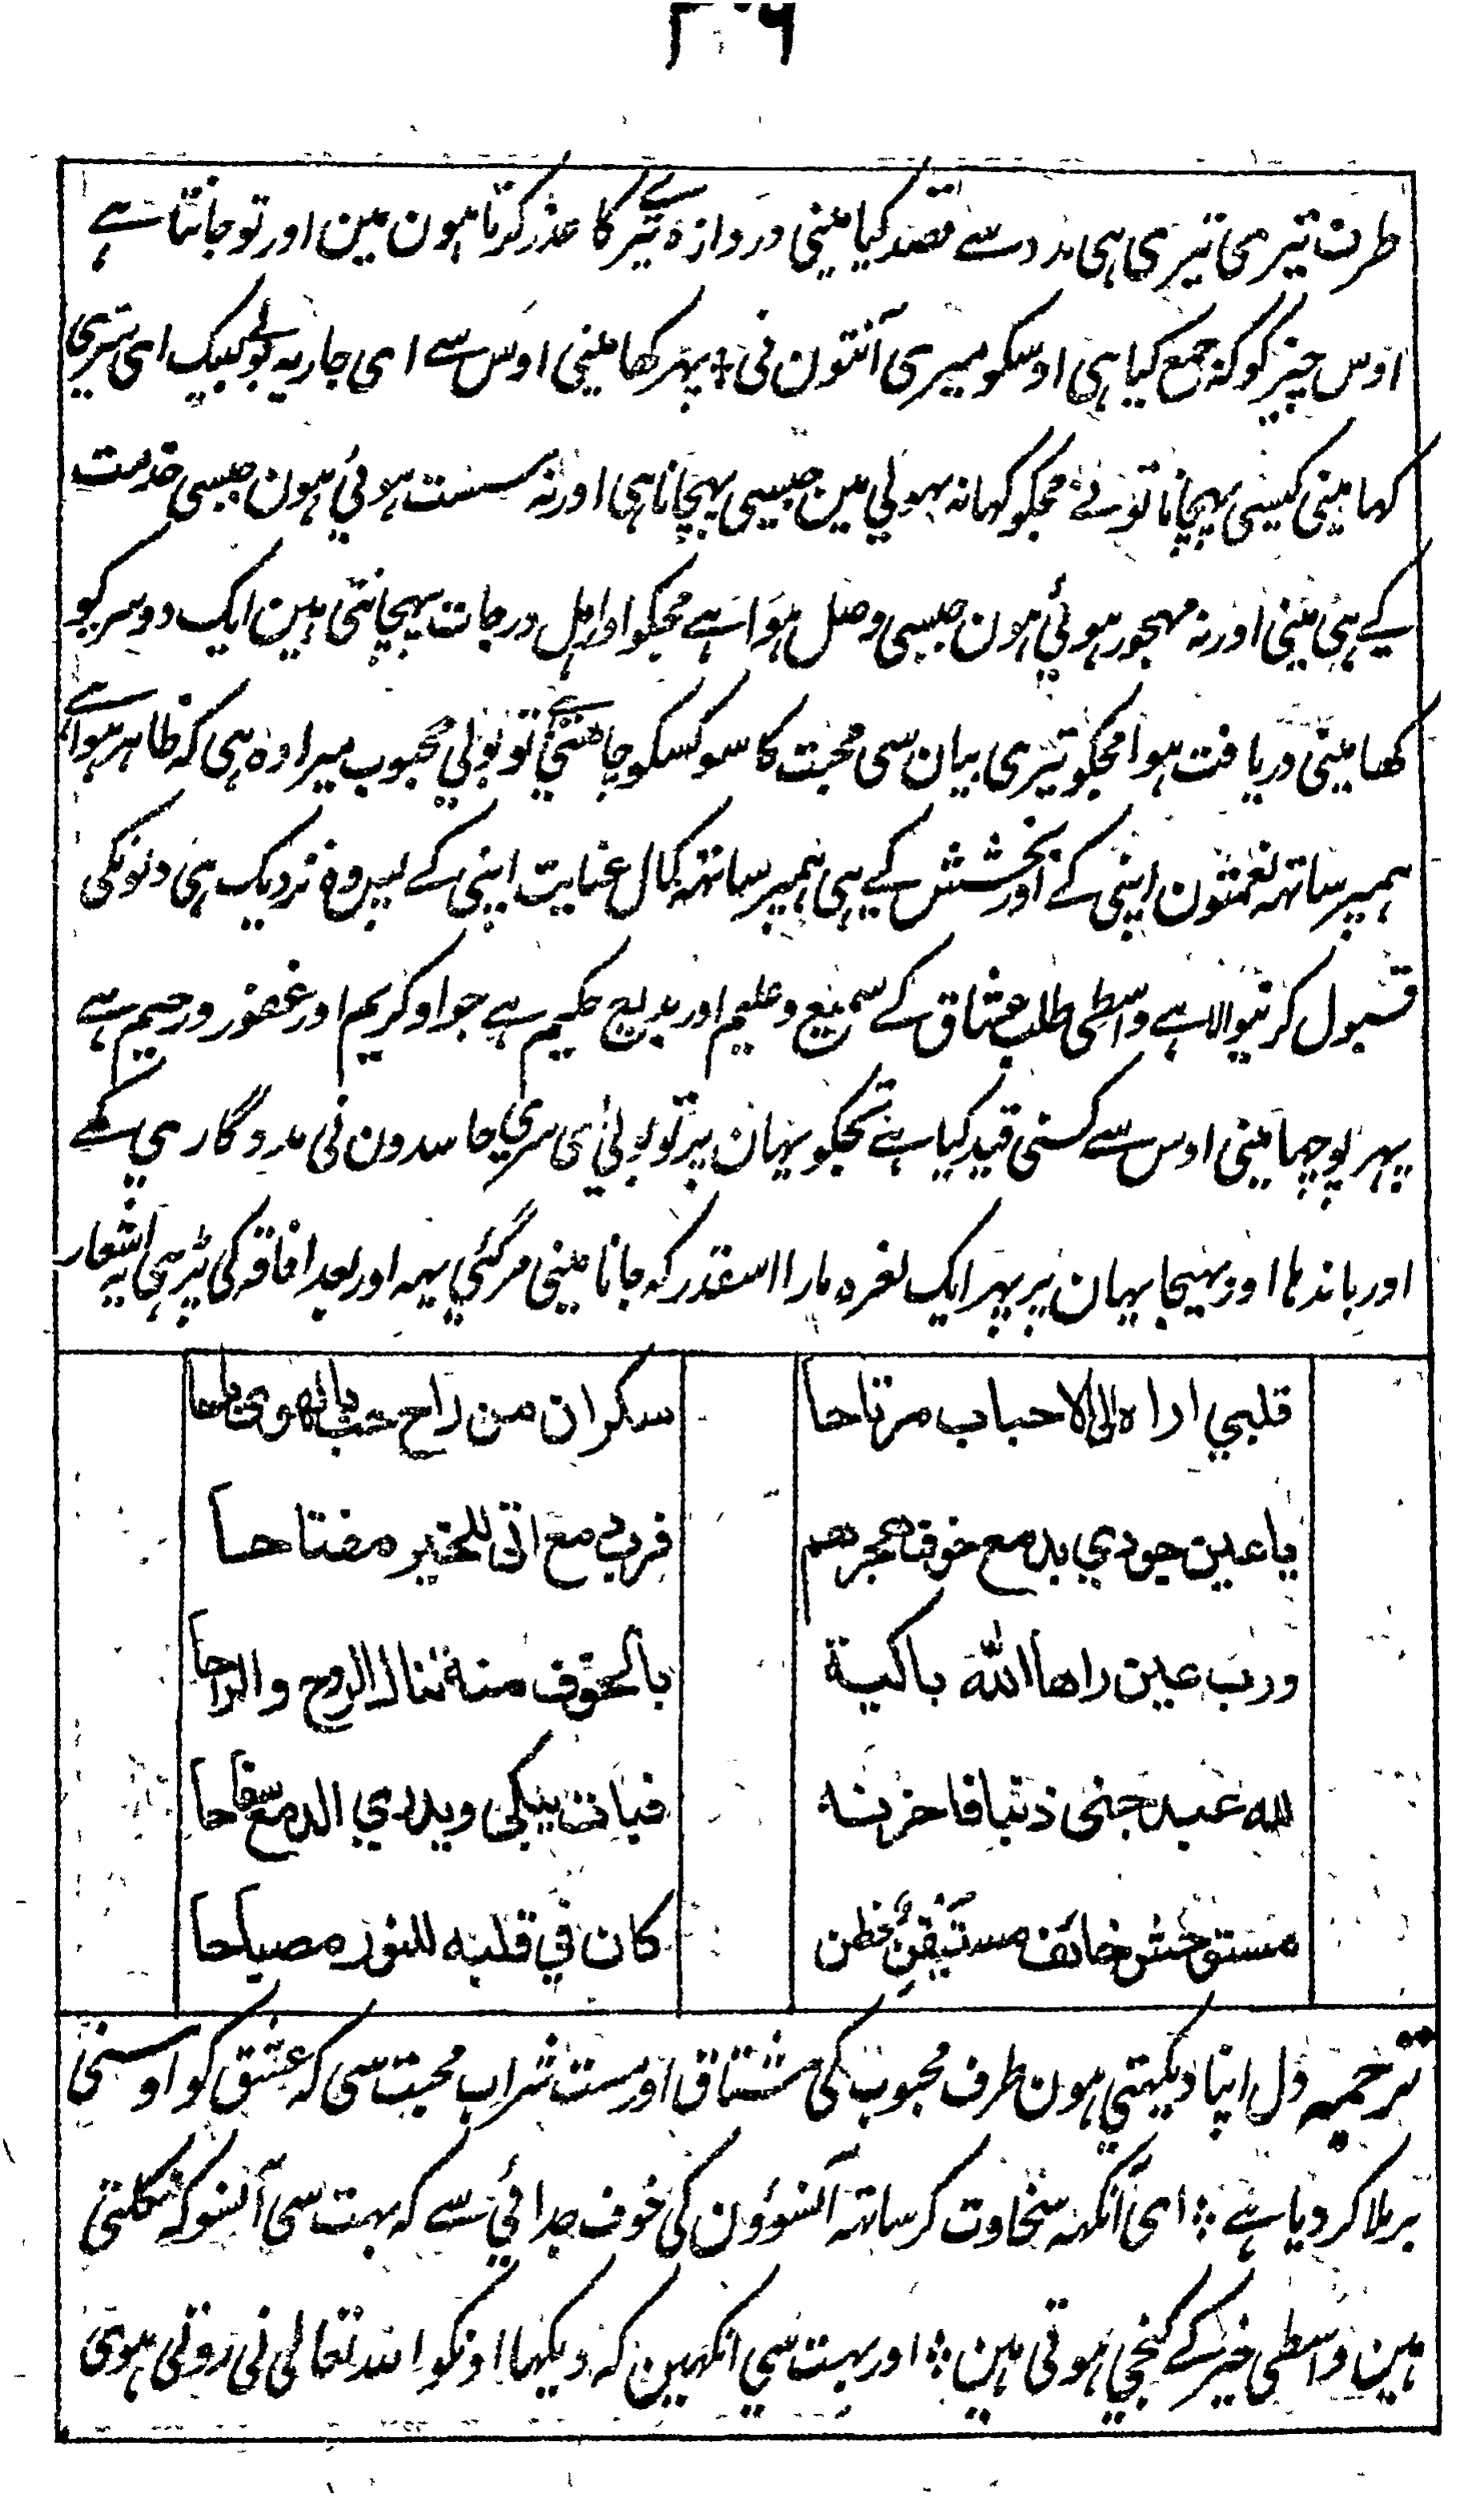 ۲۰۶
طرف تیری تیری ہی مدد سے قصد کیا مینی دروازہ تیرے کا عذر کرتا ہون مین اور تو جانتا ہے
اوس چیز کو کہ جمع کیا ہی اوسکو میری آنتون نی ÷ پہر کہا مینی اوس سے ای جاریہ بولے لبیک ای سری
کہا مینی کیسی پہچانا تو نے مجکو کہا نہ بہولی مین جیسی پہچانا ہی اور نہ سست ہوئی ہون جیسی خدمت
کے ہی مینی اور نہ مہجور ہوئی ہون جیسی وصل ہوا ہے مجکو اور اہل درجات پہچانتی ہین ایک دوسر کو
کہا مینی دریافت ہوا مجکو تیری بیان سی محبت کا سو کسکو چاہتی ہے تو بولی محبوب میرا وہ ہی کہ ظاہر ہوا ہے
ہمپر ساتہہ نعمتون اپنی کے اور بخشش کیے ہی ہمپر ساتہہ کمال عنایت اپنی کے پس وہ نزدیک ہی دلونکی
قبول کرنیوالا ہے واسطی طلب عشاق کے سمیع و علیم اور بدیع حکیم ہے جواد کریم اور غفور و رحیم ہے
پہر پوچہا مینی اوس سے کسنی قید کیا ہے تجکو یہان پر تو بولی ای سری حاسدون نی مددگاری کے
اور باندہا اور بہیجا یہان پر پہر ایک نعرہ مارا اسقدر کہ جانا مینی مر گئی یہہ اور بعد افاقہ کی پڑہی یہ اشعار
قلبي اراه الى الاحباب مرتاحا سكران من راح حب بالهوى باحا
يا عين جودي بدمع خوف هجرهم فرب دمع اتى للخير مفتاحا
ورب عين راها الله باكية بالخوف منه تنال الروح والراحا
لله عبد جنى ذنبا فاحزنه فبات يبكى ويذري الدمع سفاحا
مستوحش خائف مستيقن فطن كان في قلبه للنور مصباحا
ترجمہ دل اپنا دیکہتی ہون طرف محبوب کی مشتاق اور مست شراب محبت سی کہ عشق کو اوسنی
برملا کر دیا ہے ÷ ای آنکہہ سخاوت کر ساتہہ آنسوؤن کی خوف جدائی سے کہ بہت سی آنسو کہ نکلتی
ہین واسطی خیر کے کنجی ہوتی ہین ÷ اور بہت سی انکہین کہ دیکہا اونکو اللہ تعالی نی روتی ہوی